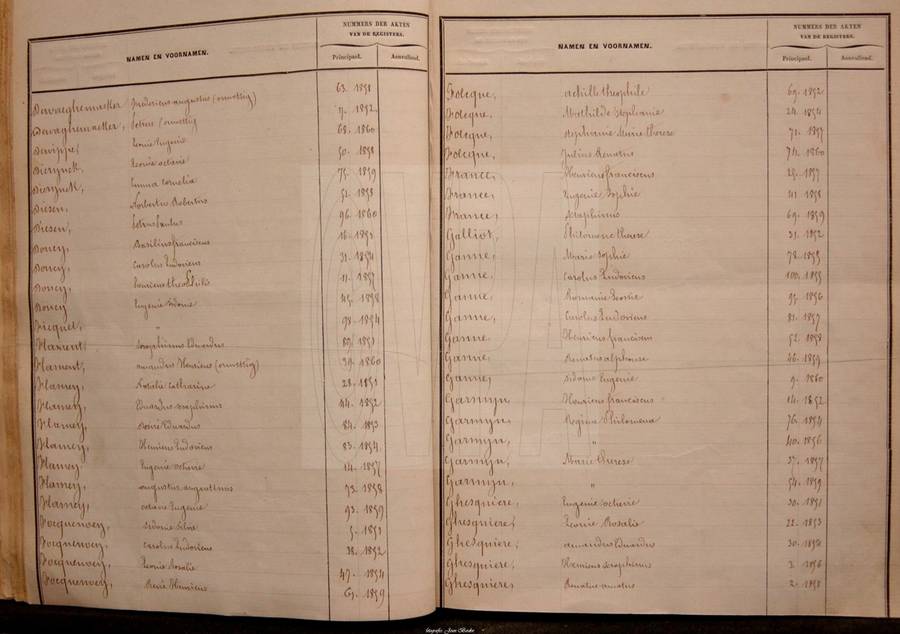 NAMEN EN VOORNAMEN.
NUMMERS DER AKTEN
VAN DE REGISTERS.
Principael. Aanvullend.
fredericus augustus (onwettig) 63. 1858
petrus (onwettig) 9. 1852
Leonie Eugenie 68. 1860
Leonie octavie 50. 1858
Emma Cornelia 75. 1859
Norbertus Robertus 52. 1858
96. 1860
Basilius franciscus 16. 1851
Carolus Ludovicus 31. 1854
Ludovicus theophilis 11. 1857
Eugenie Sidonie 45. 1858
" 98. 1854
Seraphinus Eduardus 89. 1851
amandus Henricus (onwettig) 39. 1860
Flamey, Rosalie Catharine 28. 1851
Flamey, Eduardus seraphinus 44. 1852
Flamey, Eduardus 84. 1853
Flamey, Henricus Ludovicus 83. 1854
Flamey, Eugenie octavie 14. 1857
Flamey, augustus augustinus 73. 1858
Flamey, octavie Eugenie 93. 1859
Focquenoey, Sidonie Silvie 5. 1851
Focquenoey, Carolus Ludovicus 38. 1852
Focquenoey, Leonie Rosalie 47. 1854
Focquenoey, René Henricus 61. 1859
NAMEN EN VOORNAMEN.
NUMMERS DER AKTEN
VAN DE REGISTERS.
Principael. Aanvullend.
Folcque, achille theophile 69. 1852
Folcque, Mathilde Stephanie 24. 1854
Folcque, Stephanie Marie therese 71. 1857
Folcque, Julius Renatus 74. 1860
France, Henricus franciscus 25. 1857
France, Eugenie Sophie 41. 1858
France, Seraphinus 69. 1859
Galliot, Philomene therese 31. 1852
Ganne, Marie Sophie 78. 1853
Ganne, Carolus Ludovicus 100. 1855
Ganne, Romanie Leonie 95. 1856
Ganne, Carolus Ludovicus 81. 1857
Ganne, Henricus franciscus 52. 1858
Ganne, Renatus alphonse 46. 1859
Ganne, Sidonie Eugenie 9. 1860
Garmyn, Henricus franciscus 14. 1852
Garmyn, Regina Philomena 76. 1854
Garmyn, " 40. 1856
Garmyn, Marie therese 37. 1857
Garmyn, " 54. 1859
Ghesquiere, Eugenie octavie 30. 1851
Ghesquiere, Leonie Rosalie 22. 1853
Ghesquiere, amandus Eduardus 30. 1854
Ghesquiere, Henricus seraphinus 3. 1856
Ghesquiere, Renatus amatus 2. 1858